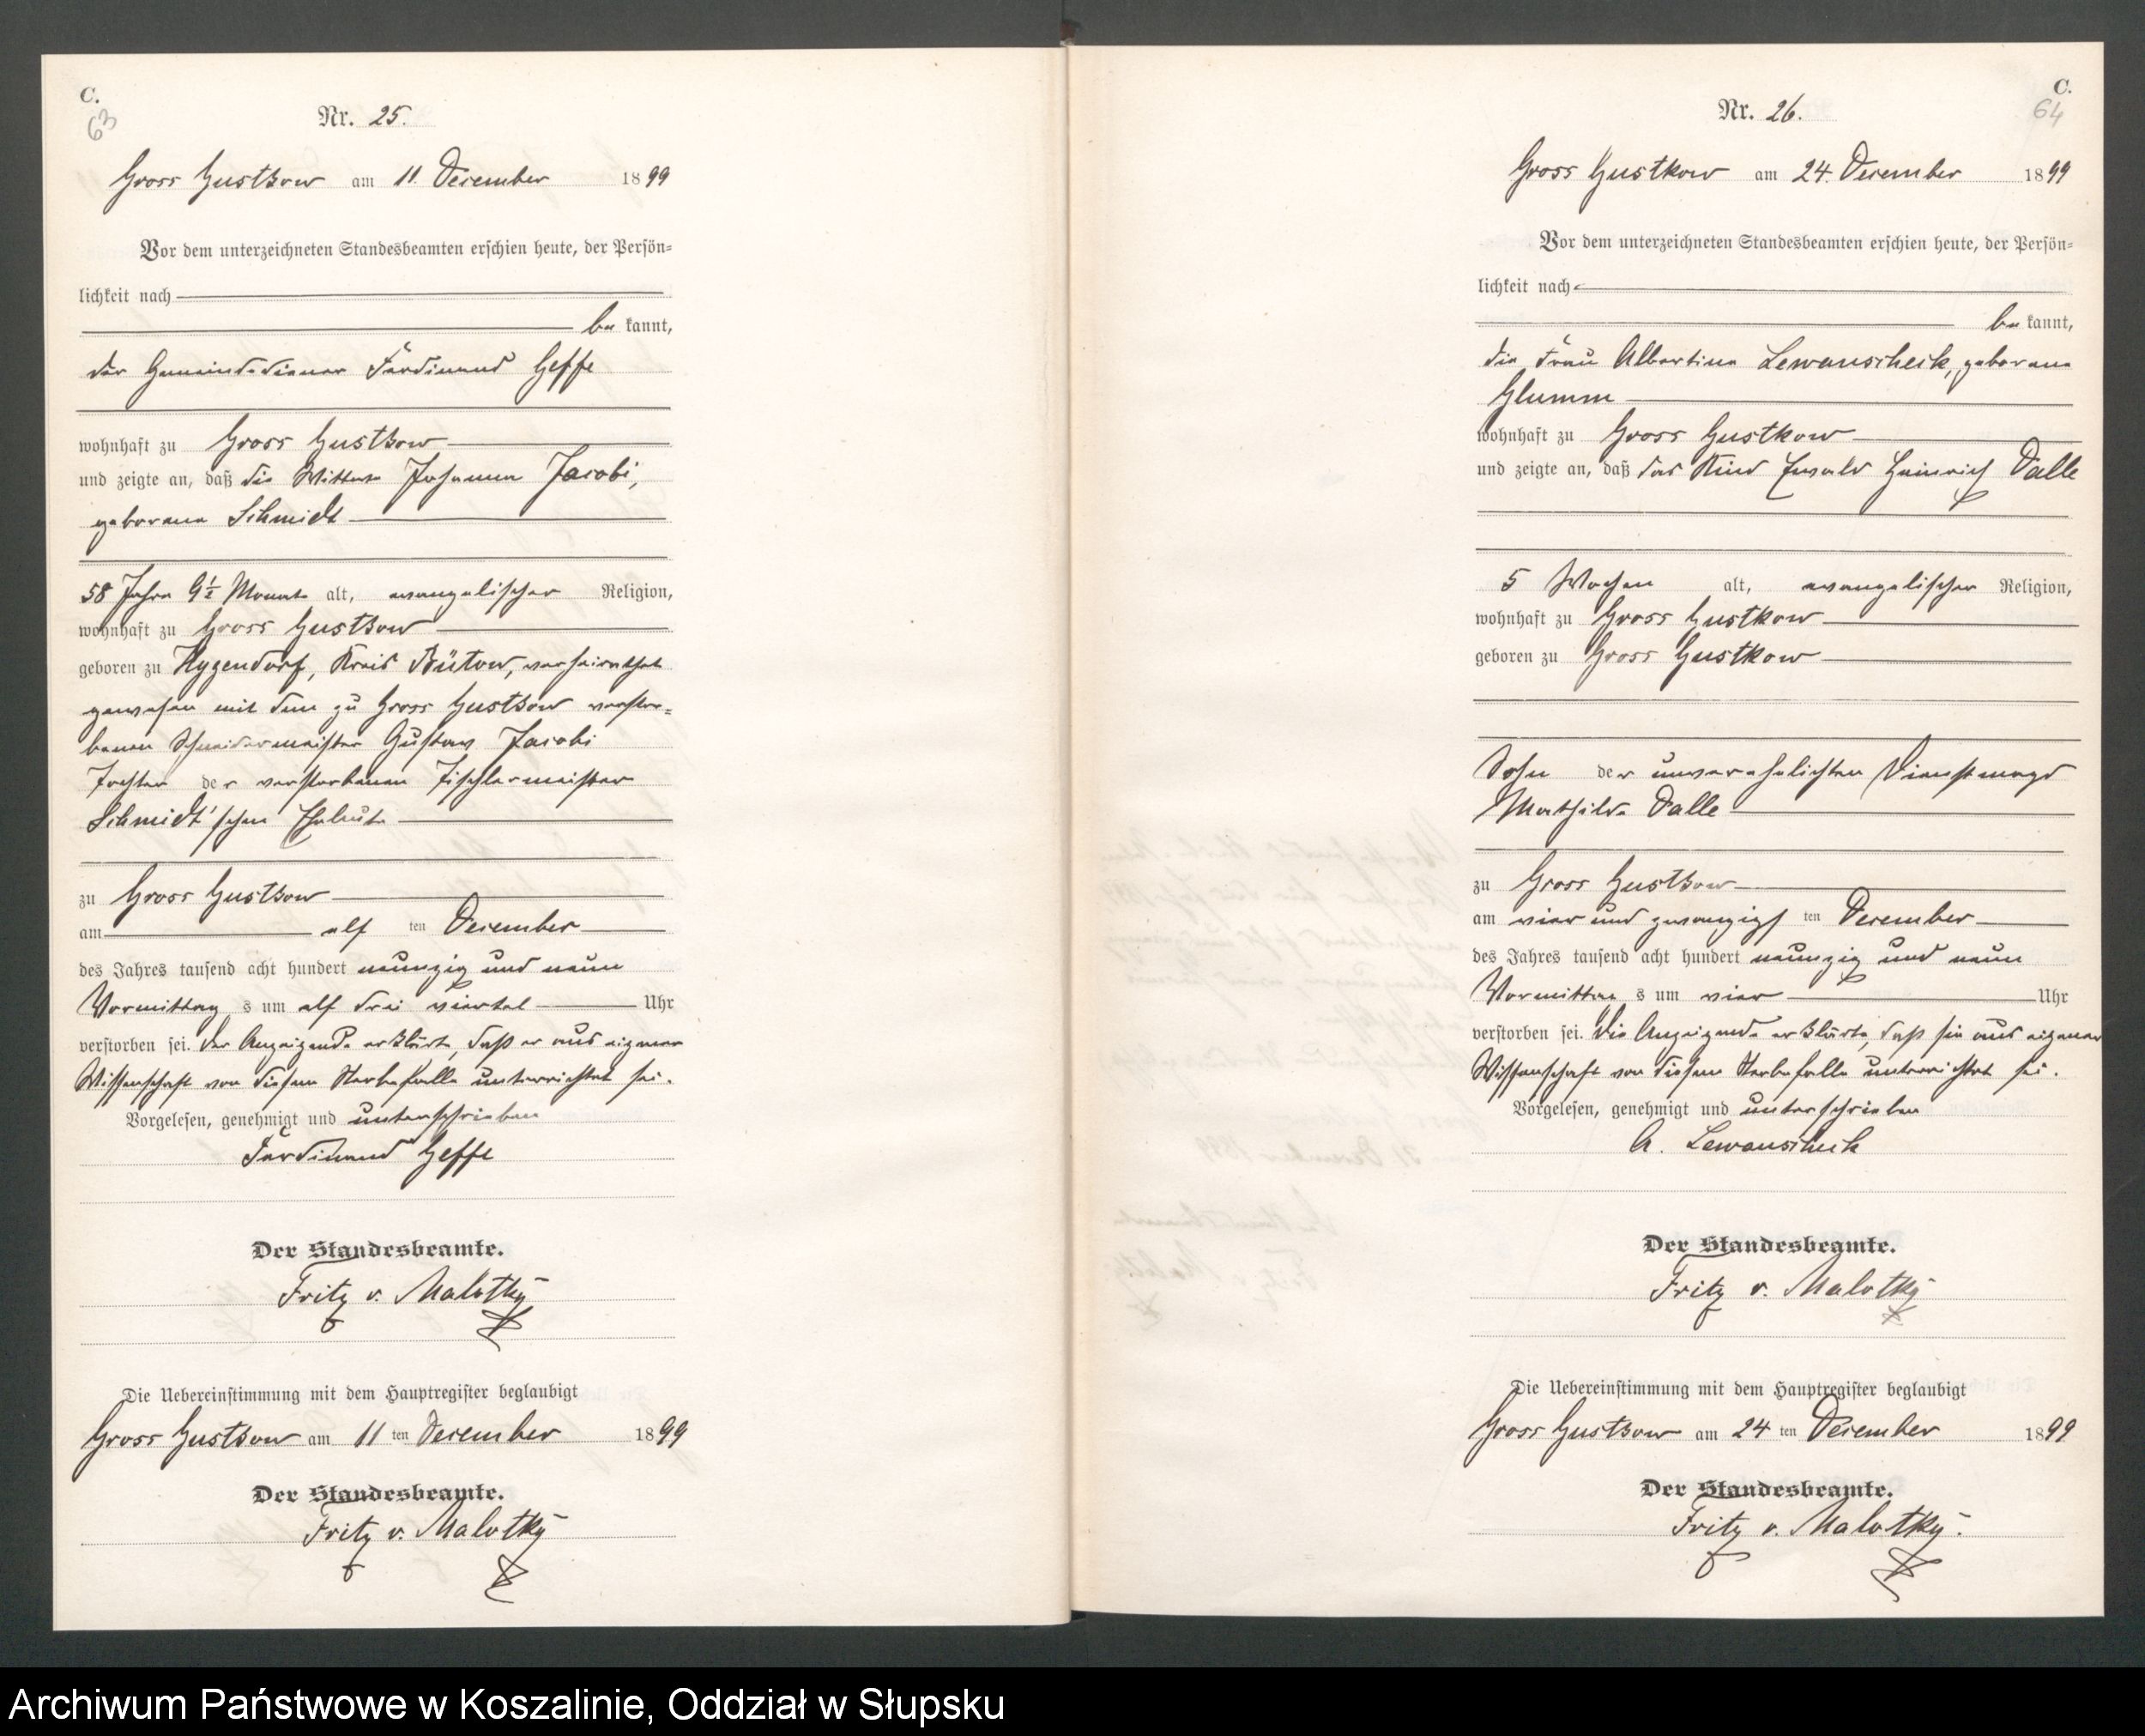 C.
63
Nr. 25.
Gross Gustkow am 11. December 1899
Vor dem unterzeichneten Standesbeamten erschien heute, der Persön=
lichkeit nach
be kannt,
der Gemeindediener Ferdinand Geffe
wohnhaft zu Gross Gustkow
und zeigte an, daß die Wittwe Johanna Jacobi,
geborene Schmidt
58 Jahre 9½ Monate alt, evangelischer Religion,
wohnhaft zu Gross Gustkow
geboren zu Hygendorf, Kreis Bütow, verheirathet
gewesen mit dem zu Gross Gustkow verstor=
benen Schneidermeister Gustav Jacobi
Tochter der verstorbenen Tischlermeister
Schmidt'schen Eheleute
zu Gross Gustkow
am elf ten December
des Jahres tausend acht hundert neunzig und neun
Vormittag s um elf drei viertel Uhr
verstorben sei. Der Anzeigende erklärte, daß er aus eigener
Wissenschaft von diesem Sterbefalle unterrichtet sei.
Vorgelesen, genehmigt und unterschrieben
Ferdinand Geffe
Der Standesbeamte.
Fritz v. Malotky
Die Uebereinstimmung mit dem Hauptregister beglaubigt
Gross Gustkow am 11 ten December 1899
Der Standesbeamte.
Fritz v. Malotky
C.
64
Nr. 26.
Gross Gustkow am 24. December 1899
Vor dem unterzeichneten Standesbeamten erschien heute, der Persön=
lichkeit nach
be kannt,
die Frau Albertine Lewanscheck, geborene
Glumm
wohnhaft zu Gross Gustkow
und zeigte an, daß das Kind Ewald Heinrich Dalle
5 Wochen alt, evangelischer Religion,
wohnhaft zu Gross Gustkow
geboren zu Gross Gustkow
Sohn der unverehelichten Dienstmagd
Mathilde Dalle
zu Gross Gustkow
am vier und zwanzigs ten December
des Jahres tausend acht hundert neunzig und neun
Vormittag s um vier Uhr
verstorben sei. Die Anzeigende erklärte, daß sie aus eigener
Wissenschaft von diesem Sterbefalle unterrichtet sei.
Vorgelesen, genehmigt und unterschrieben
A. Lewanscheck
Der Standesbeamte.
Fritz v. Malotky
Die Uebereinstimmung mit dem Hauptregister beglaubigt
Gross Gustkow am 24 ten December 1899
Der Standesbeamte.
Fritz v. Malotky.
Archiwum Państwowe w Koszalinie, Oddział w Słupsku